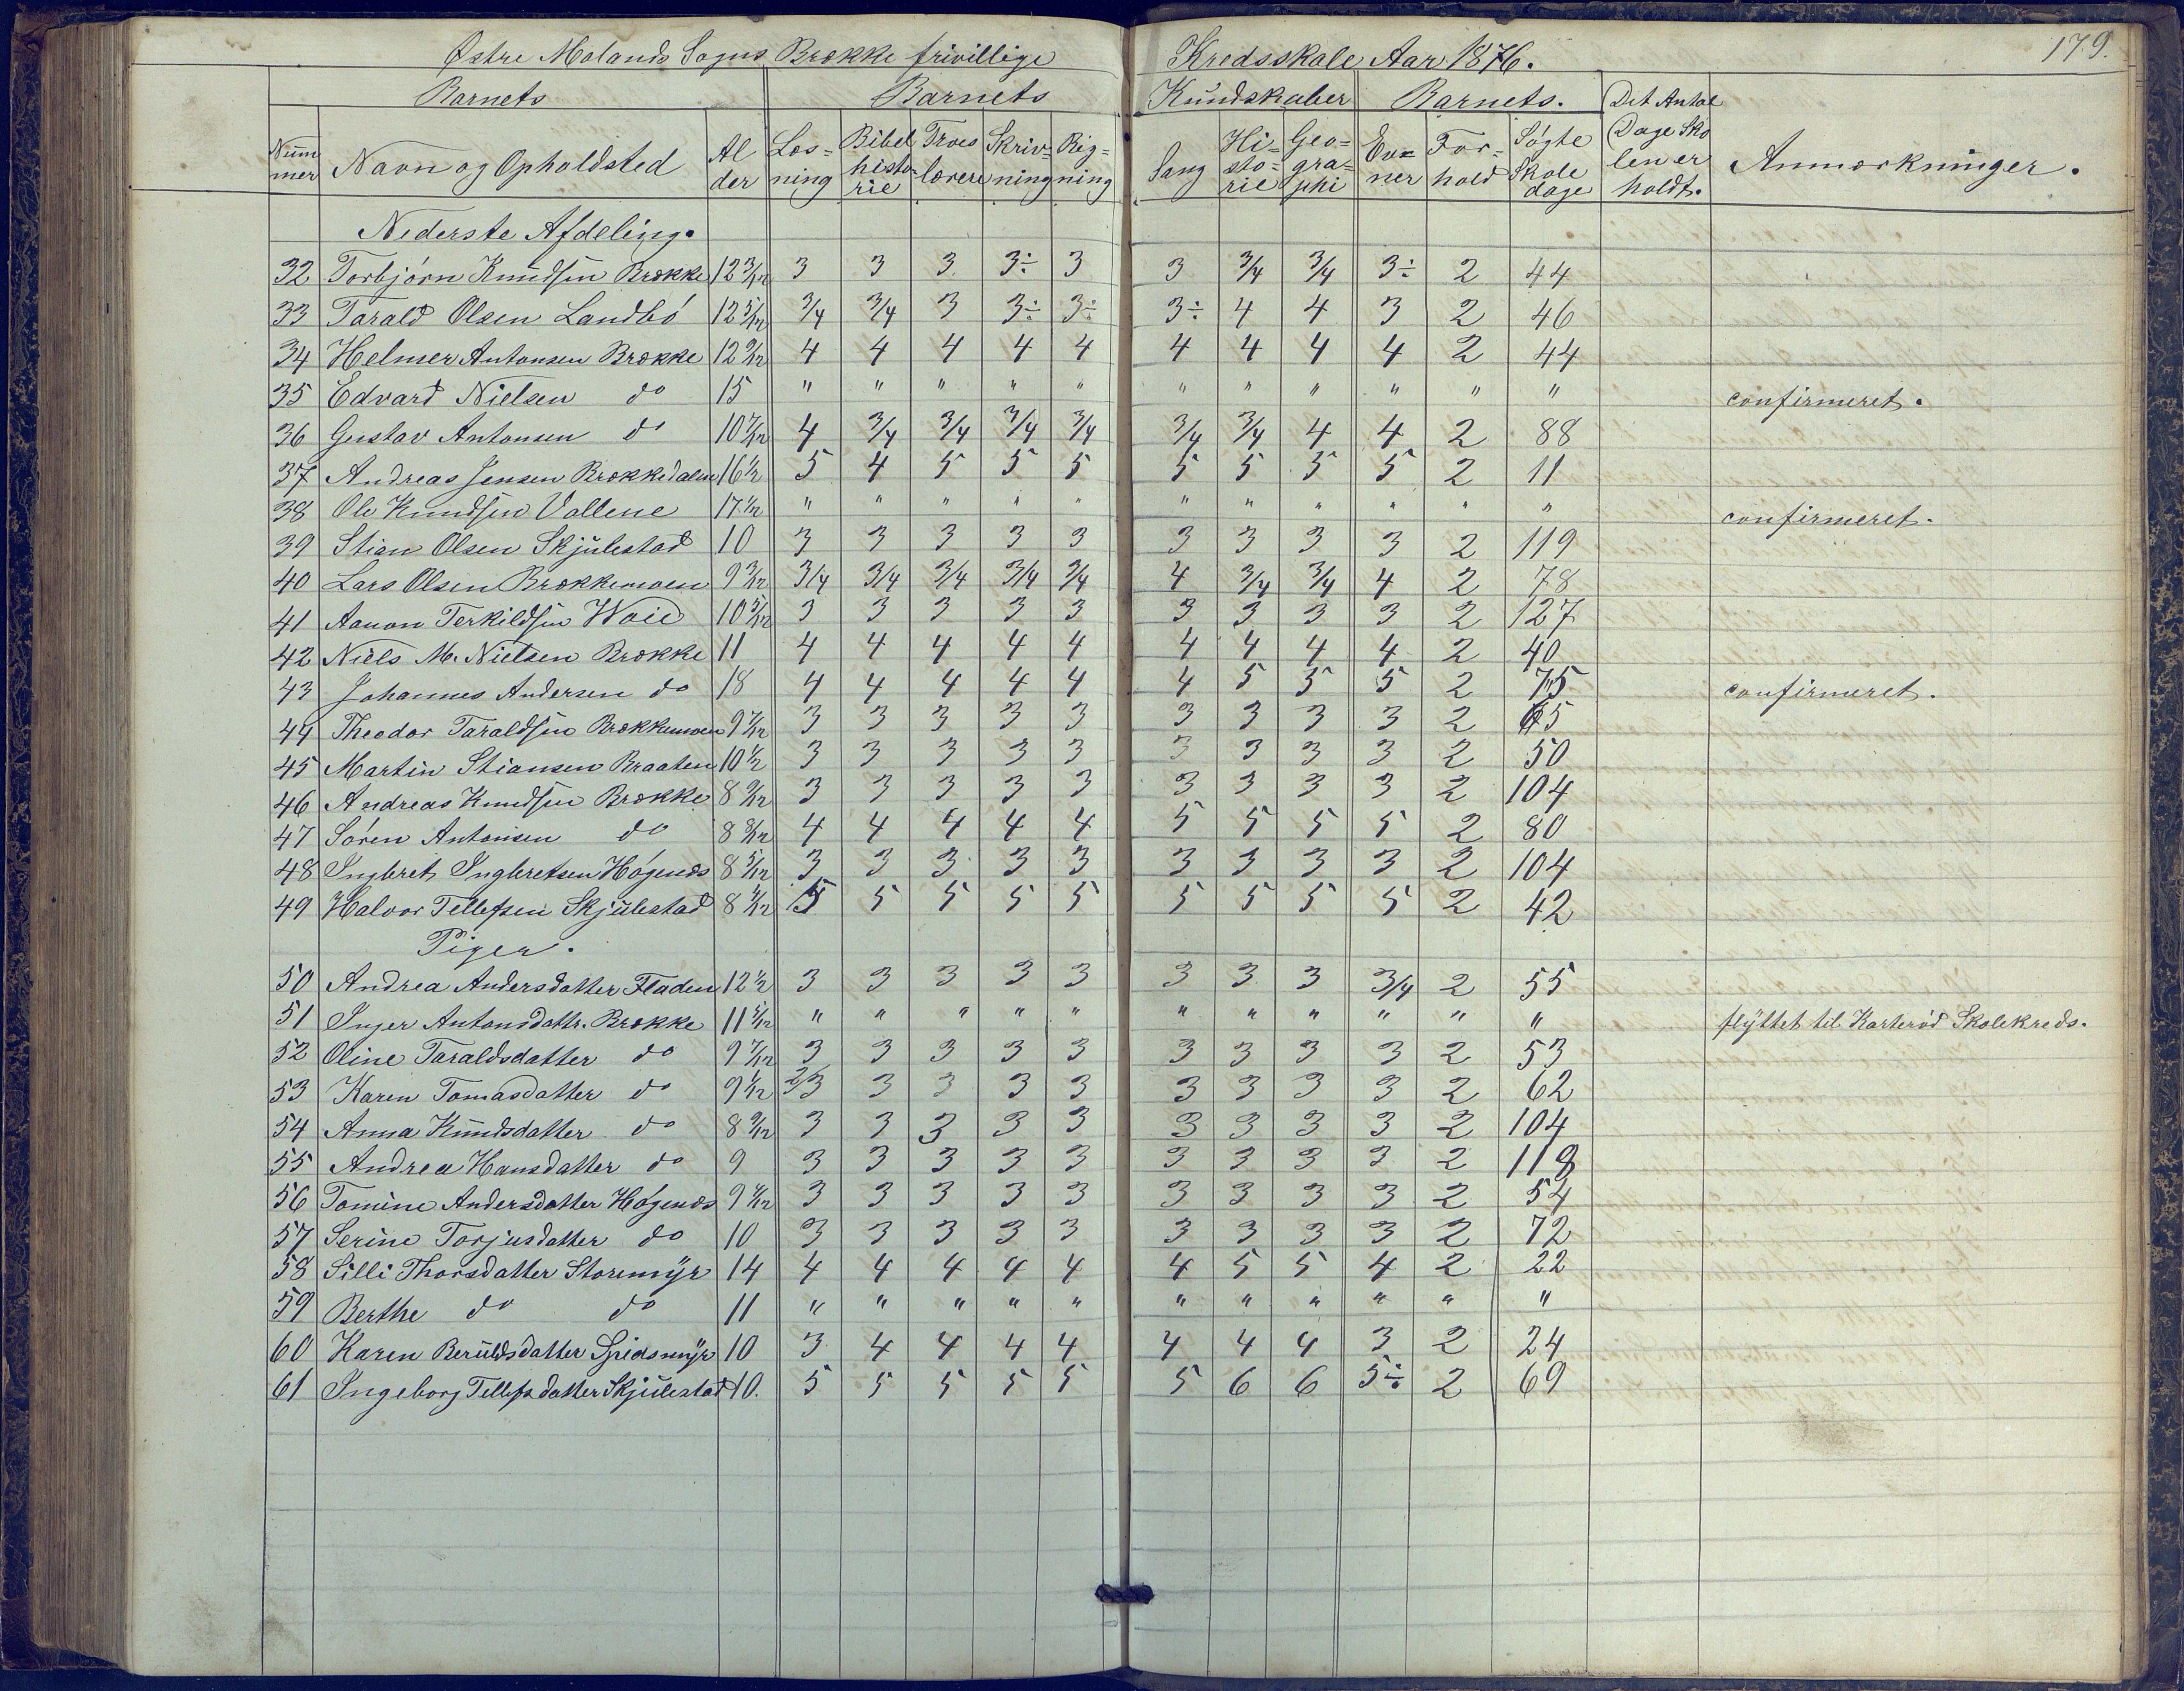 Østre Molands Sogns Brække frivillige Kredsskole Aar 1876. 179.
Barnets Barnets Kundskaber Barnets. Det Antal Dage Skolen er holdt.
Nummer Navn og Opholdsted Alder Læsning Bibelhistorie Troeslære Skrivning Regning Sang Historie Geographi Evner Forhold Søgte Skoledage Anmærkninger.
Nederste Afdeling.
32 Torbjørn Knudsen Brække 12 3/12 3 3 3 3÷ 3 3 3/4 3/4 3÷ 2 44
33 Tarald Olsen Landbö 12 5/12 3/4 3/4 3 3÷ 3÷ 3÷ 4 4 3 2 46
34 Helmer Antonsen Brække 12 9/12 4 4 4 4 4 4 4 4 4 2 44
35 Edvard Nielsen do 15 " " " " " " " " " " " confirmeret.
36 Gustav Antonsen do 10 7/12 4 3/4 3/4 3/4 3/4 3/4 3/4 4 4 2 88
37 Andreas Jensen Brækkedalen 16 1/2 5 4 5 5 5 5 5 5 5 2 11
38 Ole Knudsen Vallene 17 1/2 " " " " " " " " " " " confirmeret.
39 Stian Olsen Skjulestad 10 3 3 3 3 3 3 3 3 3 2 119
40 Lars Olsen Brækkemoen 9 3/12 3/4 3/4 3/4 3/4 3/4 4 3/4 3/4 4 2 78
41 Aanon Terkildsen Woie 10 5/12 3 3 3 3 3 3 3 3 3 2 127
42 Niels M. Nielsen Brække 11 4 4 4 4 4 4 4 4 4 2 40
43 Johannes Andersen do 18 4 4 4 4 4 4 5 5 5 2 75 confirmeret.
44 Theodor Taraldsen Brækkemoen 9 7/12 3 3 3 3 3 3 3 3 3 2 65
45 Martin Stiansen Braaten 10 1/2 3 3 3 3 3 3 3 3 3 2 50
46 Andreas Knudsen Brække 8 9/12 3 3 3 3 3 3 3 3 3 2 104
47 Søren Antonsen do 8 8/12 4 4 4 4 4 5 5 5 5 2 80
48 Ingbret Ingbretsen Høgenæs 8 5/12 3 3 3 3 3 3 3 3 3 2 104
49 Halvor Tellefsen Skjulestad 8 4/12 5 5 5 5 5 5 5 5 5 2 42
Piger.
50 Andrea Andersdatter Fladen 12 1/2 3 3 3 3 3 3 3 3 3/4 2 55
51 Inger Antonsdattr. Brække 11 5/12 " " " " " " " " " " " flyttet til Karterød Skolekreds.
52 Oline Taraldsdatter do 9 7/12 3 3 3 3 3 3 3 3 3 2 53
53 Karen Tomasdatter do 9 1/12 2/3 3 3 3 3 3 3 3 3 2 62
54 Anna Knudsdatter do 8 9/12 3 3 3 3 3 3 3 3 3 2 104
55 Andrea Hansdatter do 9 3 3 3 3 3 3 3 3 3 2 118
56 Tomine Andersdatter Høgenæs 9 4/12 3 3 3 3 3 3 3 3 3 2 54
57 Serine Torjusdatter do 10 3 3 3 3 3 3 3 3 3 2 72
58 Silli Thorsdatter Storemyr 14 4 4 4 4 4 4 5 5 4 2 22
59 Berthe do do 11 " " " " " " " " " " "
60 Karen Beruldsdatter Spidsmyr 10 3 4 4 4 4 4 4 4 3 2 24
61 Ingeborg Tellefsdatter Skjulestad 10. 5 5 5 5 5 5 6 6 5÷ 2 69